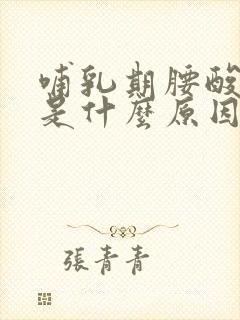 哺乳期腰酸
是什麼原因
張青青